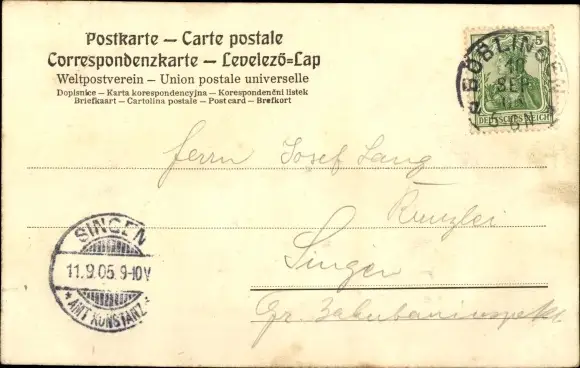 Postkarte — Carte postale
Correspondenzkarte — Levelező=Lap
Weltpostverein — Union postale universelle
Dopisnice — Karta korespondencyjna — Korespondenční listek
Briefkaart — Cartolina postale — Post card — Brefkort
5
BÖBLINGEN
10
SEP
5-6N
DEUTSCHES REICH
Herrn Josef Lang
Kanzlei
Singen
SINGEN
11.9.05. 9-10V
* AMT KONSTANZ *
Gr. Bahnbauinspekt.